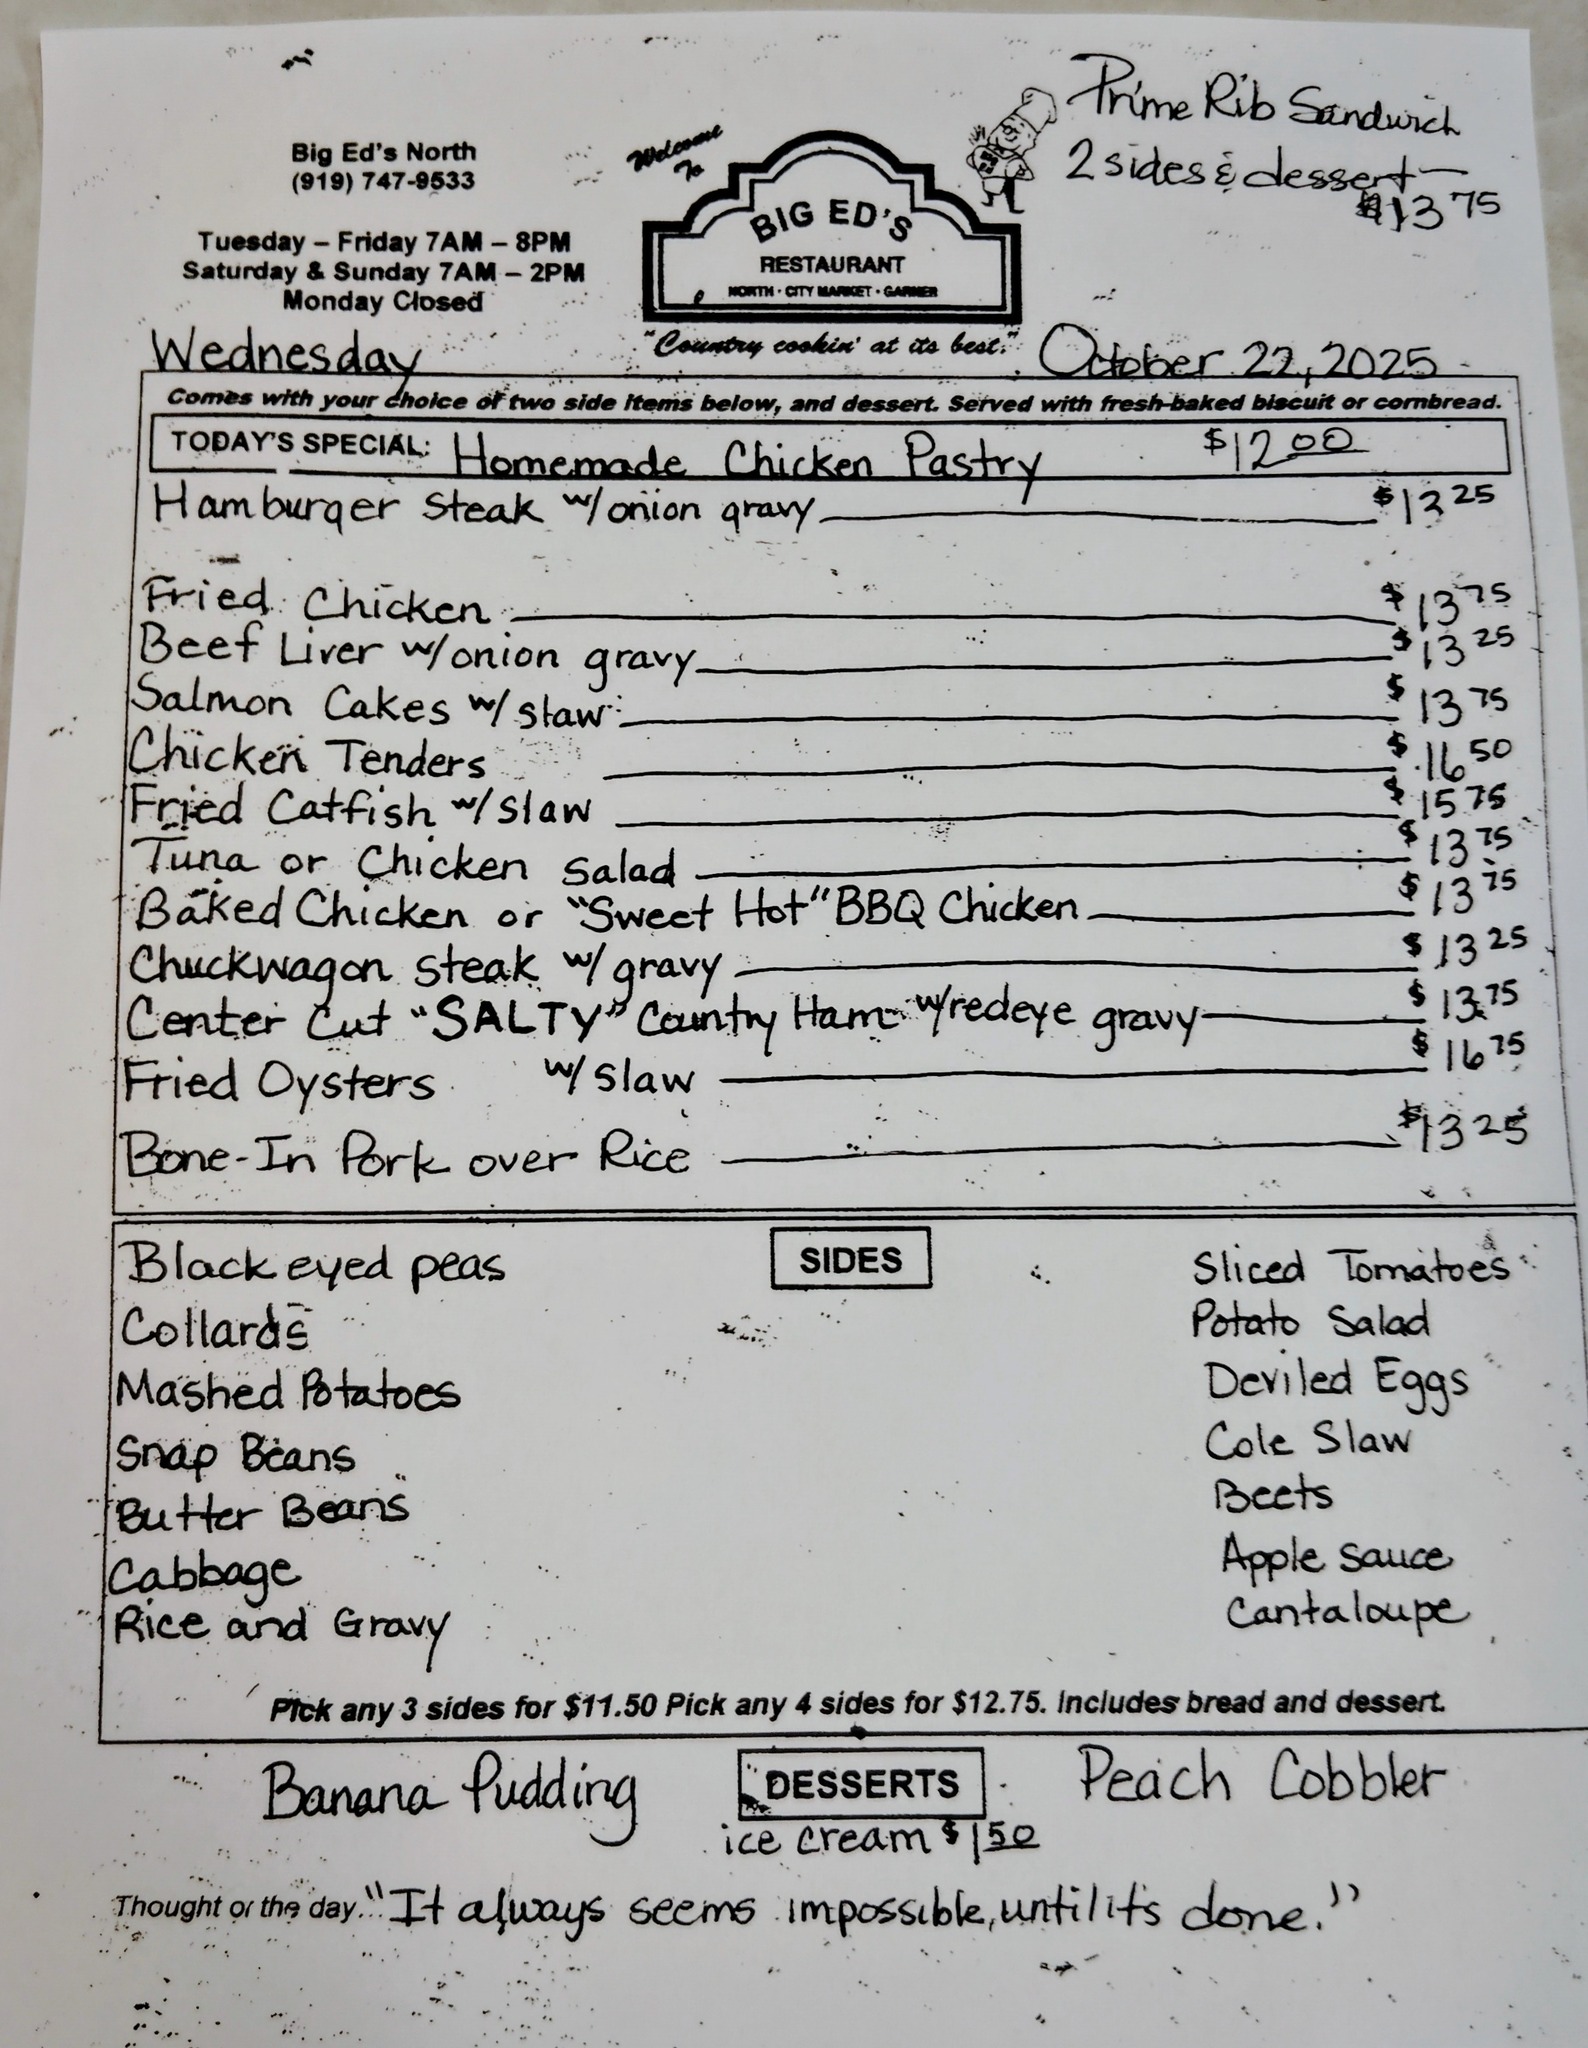 Prime Rib Sandwich
2 sides & dessert—
$13 75
Big Ed's North
(919) 747-9533
Tuesday – Friday 7AM – 8PM
Saturday & Sunday 7AM – 2PM
Monday Closed
Welcome
To
BIG ED'S
RESTAURANT
NORTH · CITY MARKET · GARNER
"Country cookin' at its best."
Wednesday October 22, 2025
Comes with your choice of two side items below, and dessert. Served with fresh-baked biscuit or cornbread.
TODAY'S SPECIAL: Homemade Chicken Pastry $12 00
Hamburger steak w/onion gravy $13 25
Fried Chicken $13 75
Beef Liver w/onion gravy $13 25
Salmon Cakes w/slaw $13 75
Chicken Tenders $16 50
Fried Catfish w/slaw $15 75
Tuna or Chicken salad $13 75
Baked Chicken or "Sweet Hot" BBQ Chicken $13 75
Chuckwagon steak w/gravy $13 25
Center Cut "SALTY" Country Ham w/redeye gravy $13.75
Fried Oysters w/slaw $16 75
Bone-In Pork over Rice $13 25
SIDES
Black eyed peas Sliced Tomatoes
Collards Potato Salad
Mashed Potatoes Deviled Eggs
Snap Beans Cole Slaw
Butter Beans Beets
Cabbage Apple sauce
Rice and Gravy Cantaloupe
Pick any 3 sides for $11.50 Pick any 4 sides for $12.75. Includes bread and dessert.
Banana Pudding DESSERTS Peach Cobbler
ice cream $1 50
Thought of the day. "It always seems impossible, until it's done."